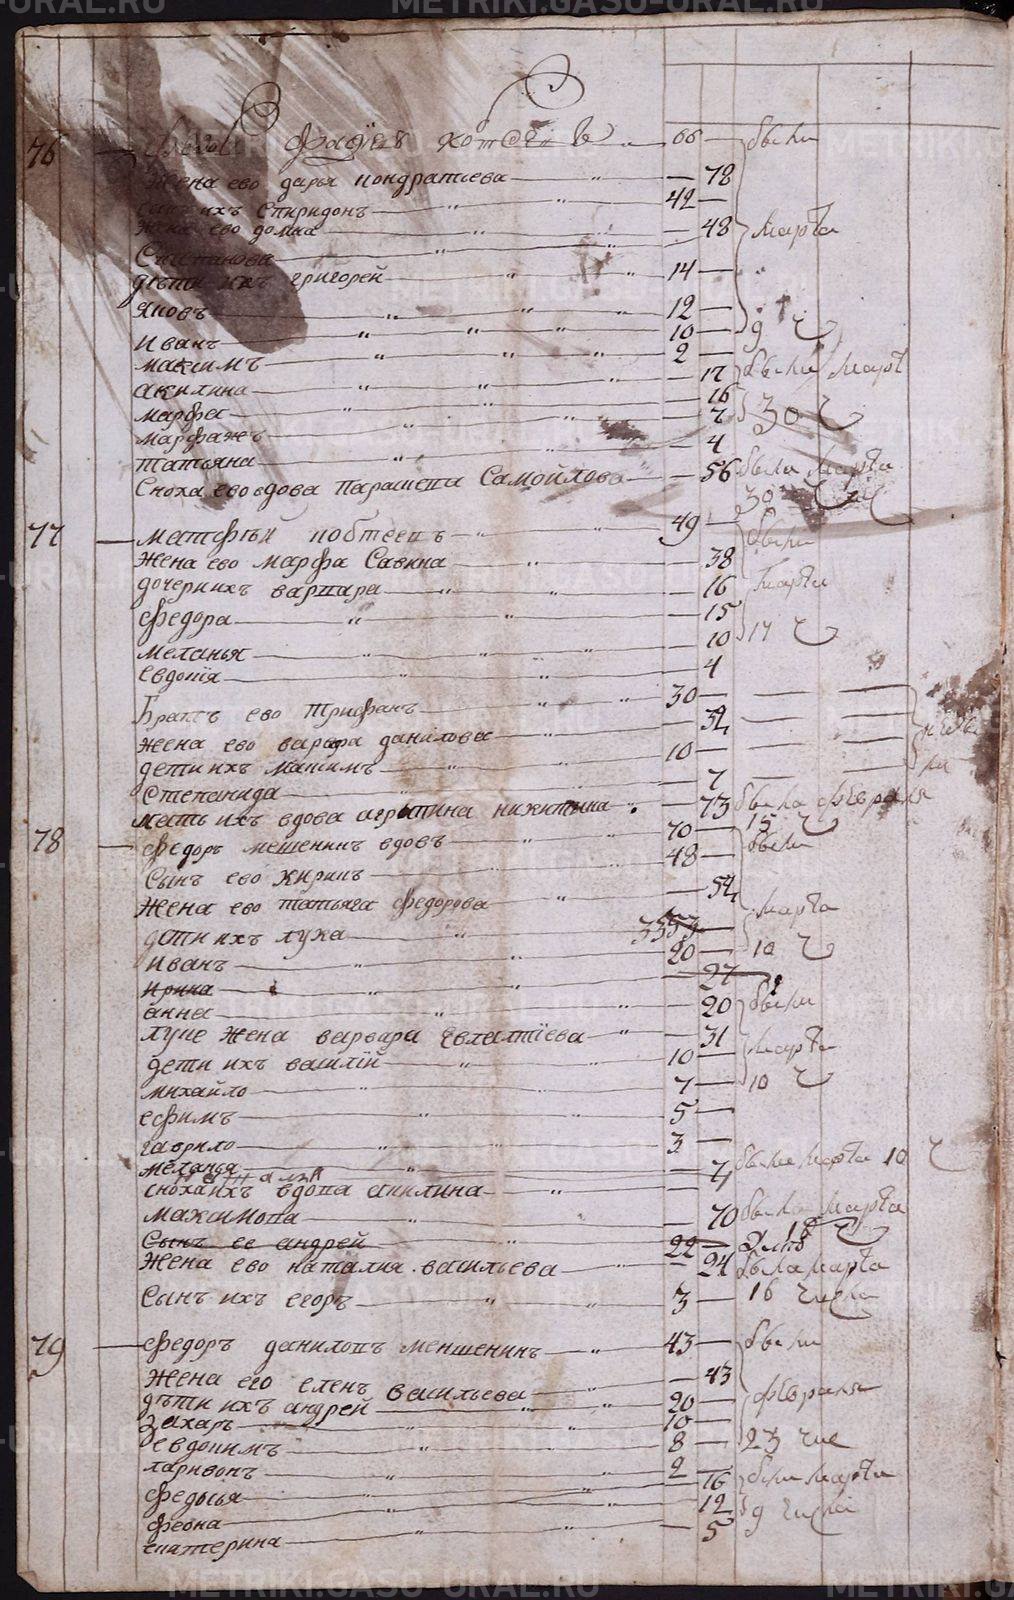 METRIKI.GASO-URAL.RU
76 фадѣев 66 были
жена ево дарья кондратьева 78
сынъ ихъ спиридонъ 42
жена ево домна 48 марта
Степанова
дѣти ихъ григорей 14
яковъ 12
иванъ 10 9 ч
максимъ 2
акилина 17 были март
марфа 16 30 ч
марфа жъ 7
татьяна 4
Сноха ево вдова парасковья Самойлова 56 была марта
30 чис
77 матфѣй 49 были
жена ево марфа Савина 38
дочери ихъ варвара 16 марта
федора 15
меланья 10 17 ч
евдокія 4
Братъ ево трифанъ 30
жена ево варвара данилова 34
дети ихъ максимъ 10
Степанида 7
мать ихъ вдова агрыпина никитина 73 была февраля
15 ч
78 федоръ мешенинъ вдовъ 70 были
Сынъ ево кирилъ 48
жена ево татьяна федорова 54 марта
дети ихъ лука 33
иванъ 20 10 ч
ирина 27
анна 20 были
луке жена варвара евлампіева 31 марта
дети ихъ василій 10
михайло 7 10 ч
ефимъ 5
гаврило 3
меланья 4 были марта 10 ч
сноха ихъ вдова акилина
максимова 70 была марта
Сынъ ее андрей 22
жена ево наталия васильева 24 была марта
Сынъ ихъ егоръ 3 16 числа
79 федоръ даниловъ меншенинъ 43 были
жена его елена васильева 43
дѣти ихъ андрей 20 февраля
захаръ 10
евдокимъ 8 23 чис
ларивонъ 2
федосья 16 были марта
феона 12 9 числа
екатерина 5
METRIKI.GASO-URAL.RU